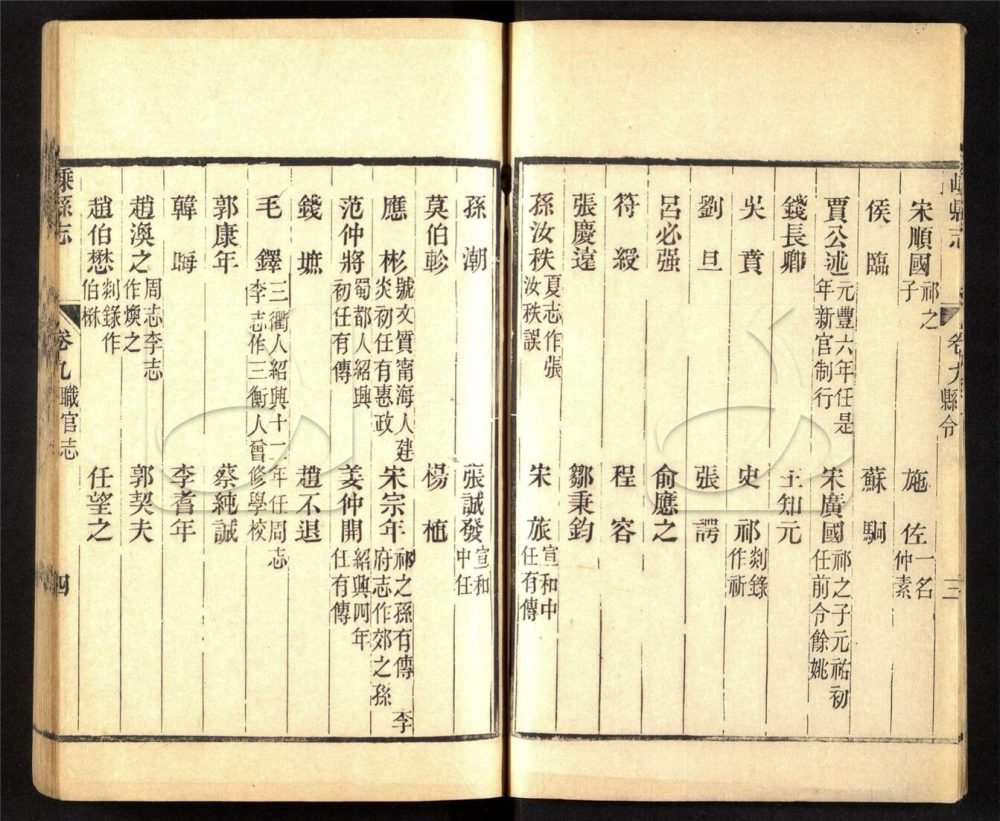 嵊縣志 卷九 縣令 三
宋順國 祁之子 施佐 一名仲素
侯臨 蘇駉
賈公述 元豐六年任是年新官制行 宋廣國 祁之子元祐初任前令餘姚
錢長卿 王知元
吳賁 史祁 剡錄作祈
劉旦 張諤
呂必强 俞應之
符綬 程容
張慶遠 鄒秉鈞
孫汝秩 夏志作張汝秩誤 宋旅 宣和中任有傳
孫潮 張誠發 宣和中任
莫伯軫 楊植
應彬 號友質甯海人建炎初任有惠政 宋宗年 祁之孫有傳李府志作郊之孫
范仲將 蜀都人紹興初任有傳 姜仲開 紹興四年任有傳
錢㙇 趙不退
毛鐸 三衢人紹興十一年任周志李志作三衡人曾修學校
郭康年 蔡純誠
韓晦 李耆年
趙渙之 周志李志作煥之 郭契夫
趙伯懋 剡錄作伯楙 任望之
嵊縣志 卷九 職官志 四